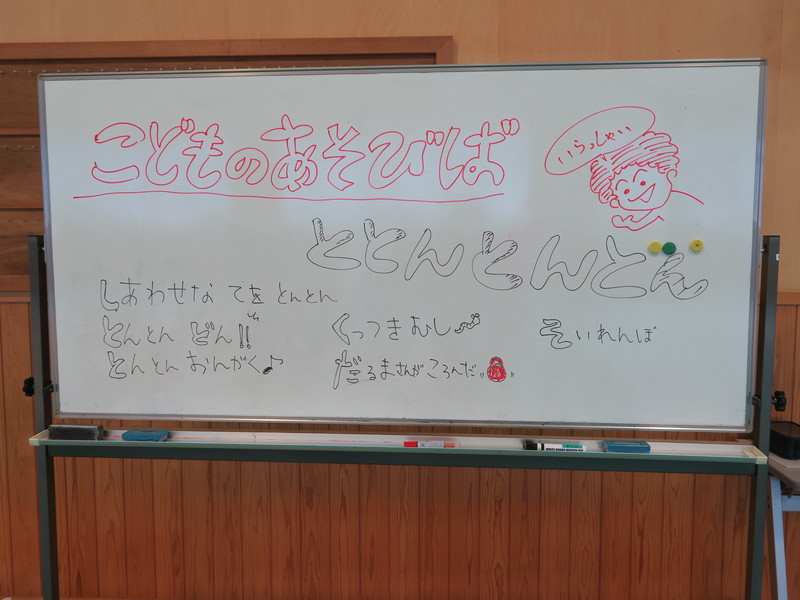 こどものあそびば
いらっしゃい
ととんとんとん
しあわせな てを とんとん
とんとん どん!!
とんとん おんがく♪
くっつきむし
だるまさんがころんだ
そいれんぼ